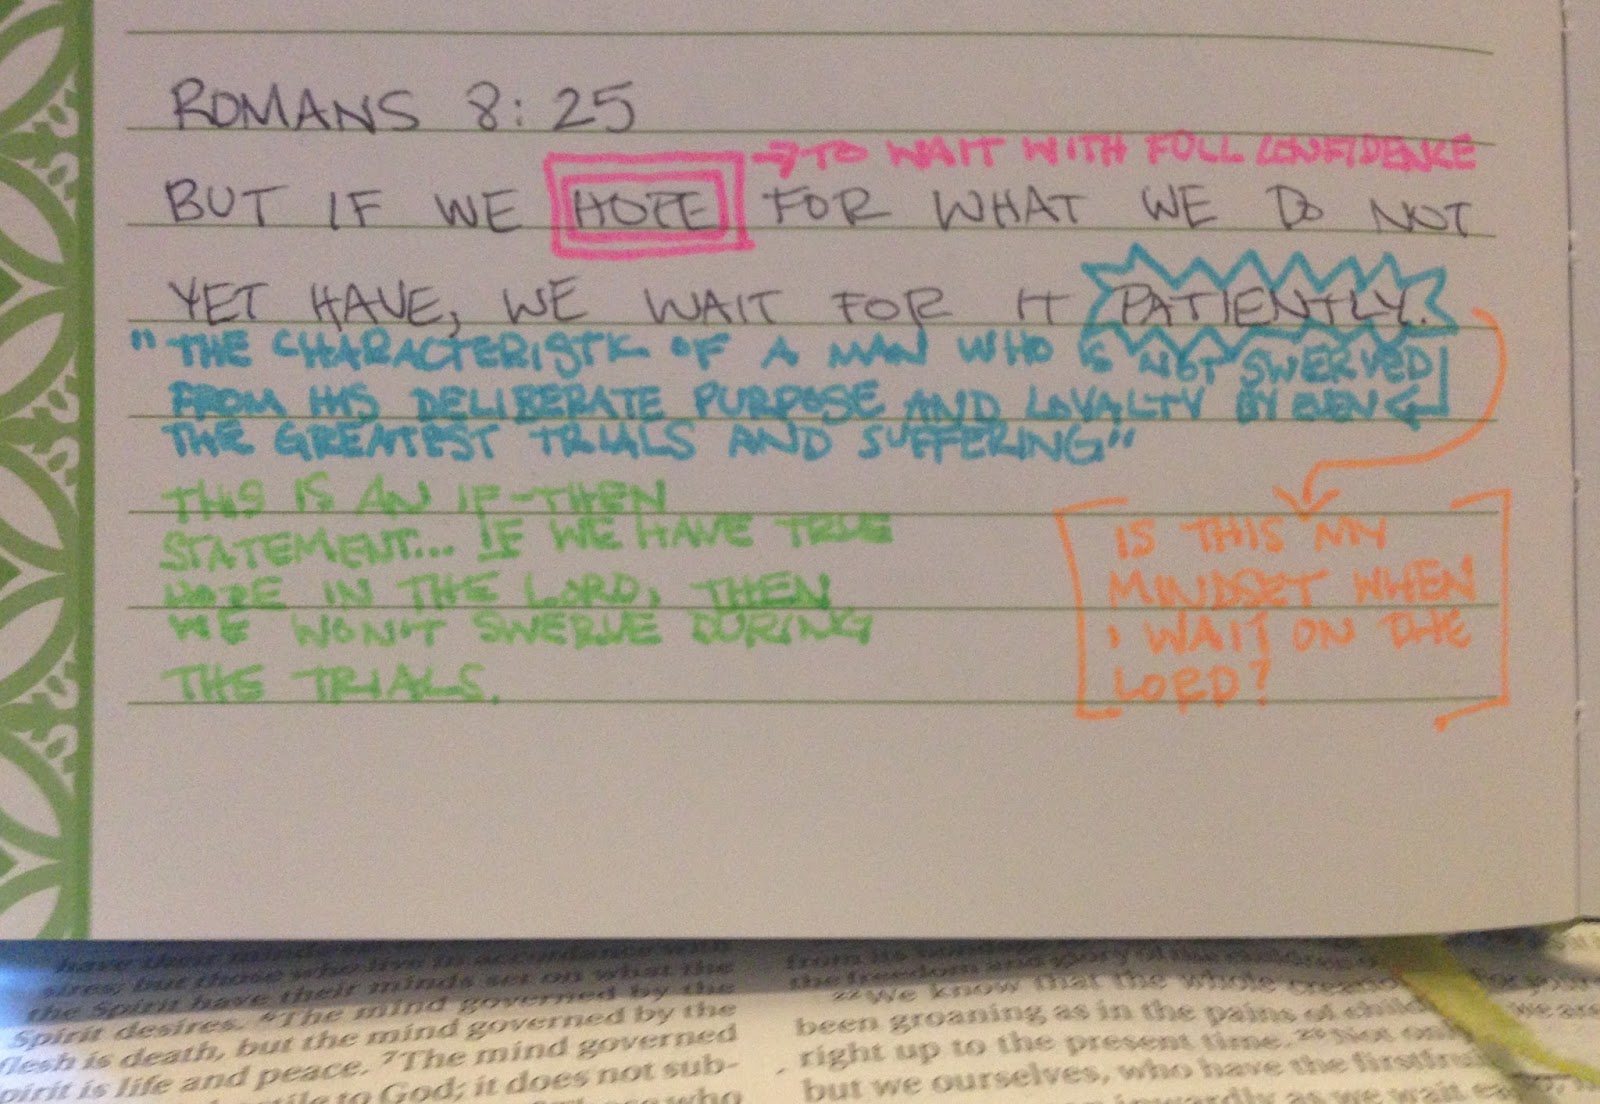 ROMANS 8:25
→ TO WAIT WITH FULL CONFIDENCE
BUT IF WE HOPE FOR WHAT WE DO NOT
YET HAVE, WE WAIT FOR IT PATIENTLY.
"THE CHARACTERISTIC OF A MAN WHO IS NOT SWERVED
FROM HIS DELIBERATE PURPOSE AND LOYALTY BY EVEN
THE GREATEST TRIALS AND SUFFERING"
THIS IS AN IF-THEN
STATEMENT... IF WE HAVE TRUE
HOPE IN THE LORD, THEN
WE WON'T SWERVE DURING
THE TRIALS.
IS THIS MY
MINDSET WHEN
I WAIT ON THE
LORD?
have their minds
sires; but those who live in accordance with
the Spirit have their minds set on what the
Spirit desires. 6The mind governed by the
flesh is death, but the mind governed by the
pirit is life and peace. 7The mind governed
to God; it does not sub-
who
from its
the freedom and glory of the children
22We know that the whole
been groaning as in the pains of
right up to the present time. 23Not
but we ourselves, who have the
inwardly as we wait
we are